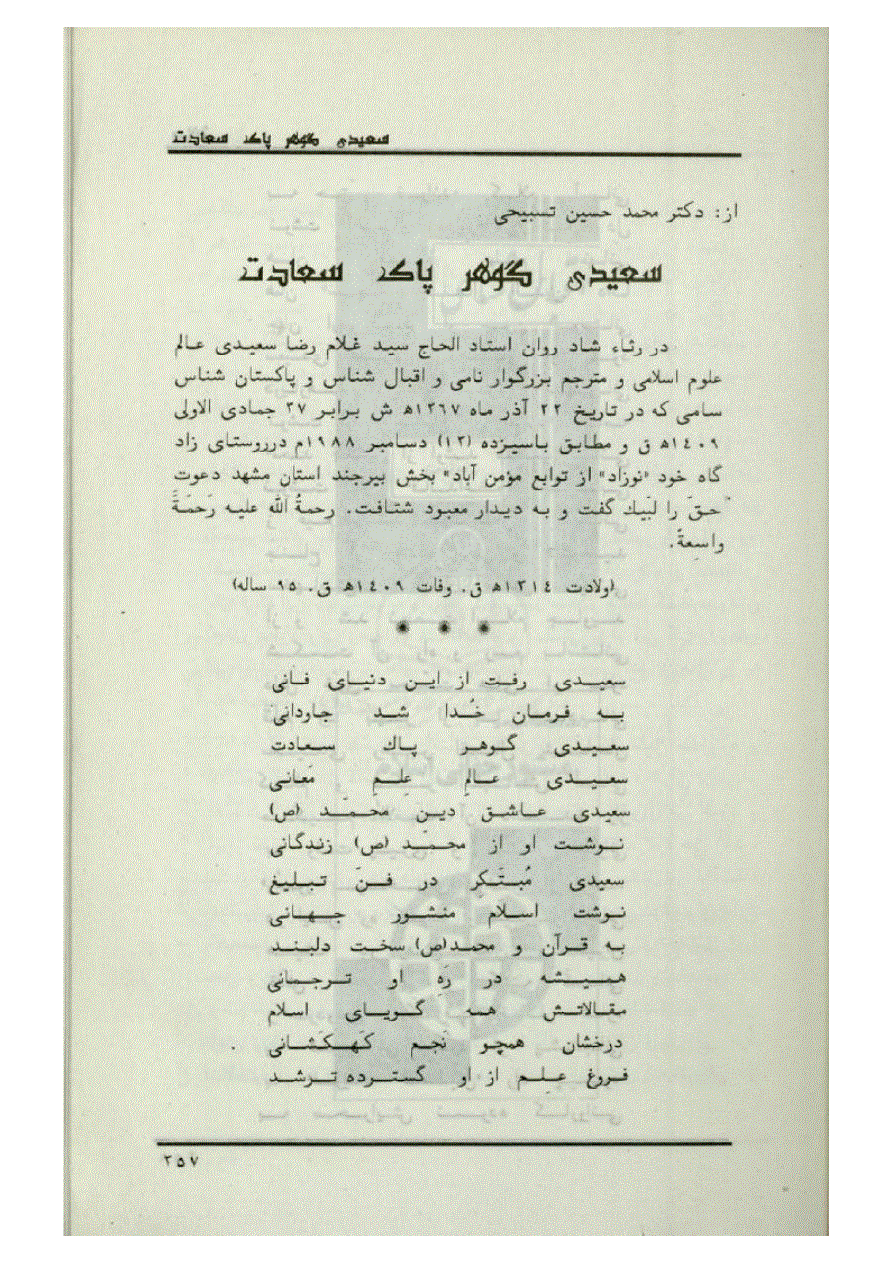 سعیدی گوهر پاک سعادت
از: دکتر محمد حسین تسبیحی
سعیدی گوهر پاک سعادت
در رثاء شاد روان استاد الحاج سید غلام رضا سعیدی عالم
علوم اسلامی و مترجم بزرگوار نامی و اقبال شناس و پاکستان شناس
سامی که در تاریخ ۲۲ آذر ماه ۱۳۶۷ه‍ ش برابر ۲۷ جمادی الاولی
۱۴۰۹ه‍ ق و مطابق باسیزده (۱۳) دسامبر ۱۹۸۸م درروستای زاد
گاه خود «نوزاد» از توابع مؤمن آباد» بخش بیرجند استان مشهد دعوت
حقّ را لَبّیك گفت و به دیدار معبود شتافت. رحمةُ الله علیه رَحمَةً
واسِعةً.
(ولادت ۱۳۱۴ه‍ ق. وفات ۱۴۰۹ه‍ ق. ۹۵ ساله)
* * *
سعیدی رفت از این دنیای فانی
به فرمان خُدا شد جاردانی
سعیدی گوهر پاك سعادت
سعیدی عالمِ علِمِ مَعانی
سعیدی عاشق دین محمّد (ص)
نوشت او از محمّد (ص) زندگانی
سعیدی مُبتَکرِ در فنّ تبلیغ
نوشت اسلام منشور جهانی
به قرآن و محمد(ص) سخت دلبند
همیشه در رَهِ او ترجمانی
مقالاتش همه گویای اسلام
درخشان همچو نَجم کَهکَشانی
فروغ علِم از او گسترده ترشد
۲۵۷